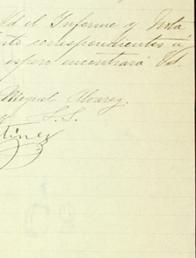 el Informe y
correspondientes á
espero encontrará Vd.
Miguel Alvarez
S. S.
tinez